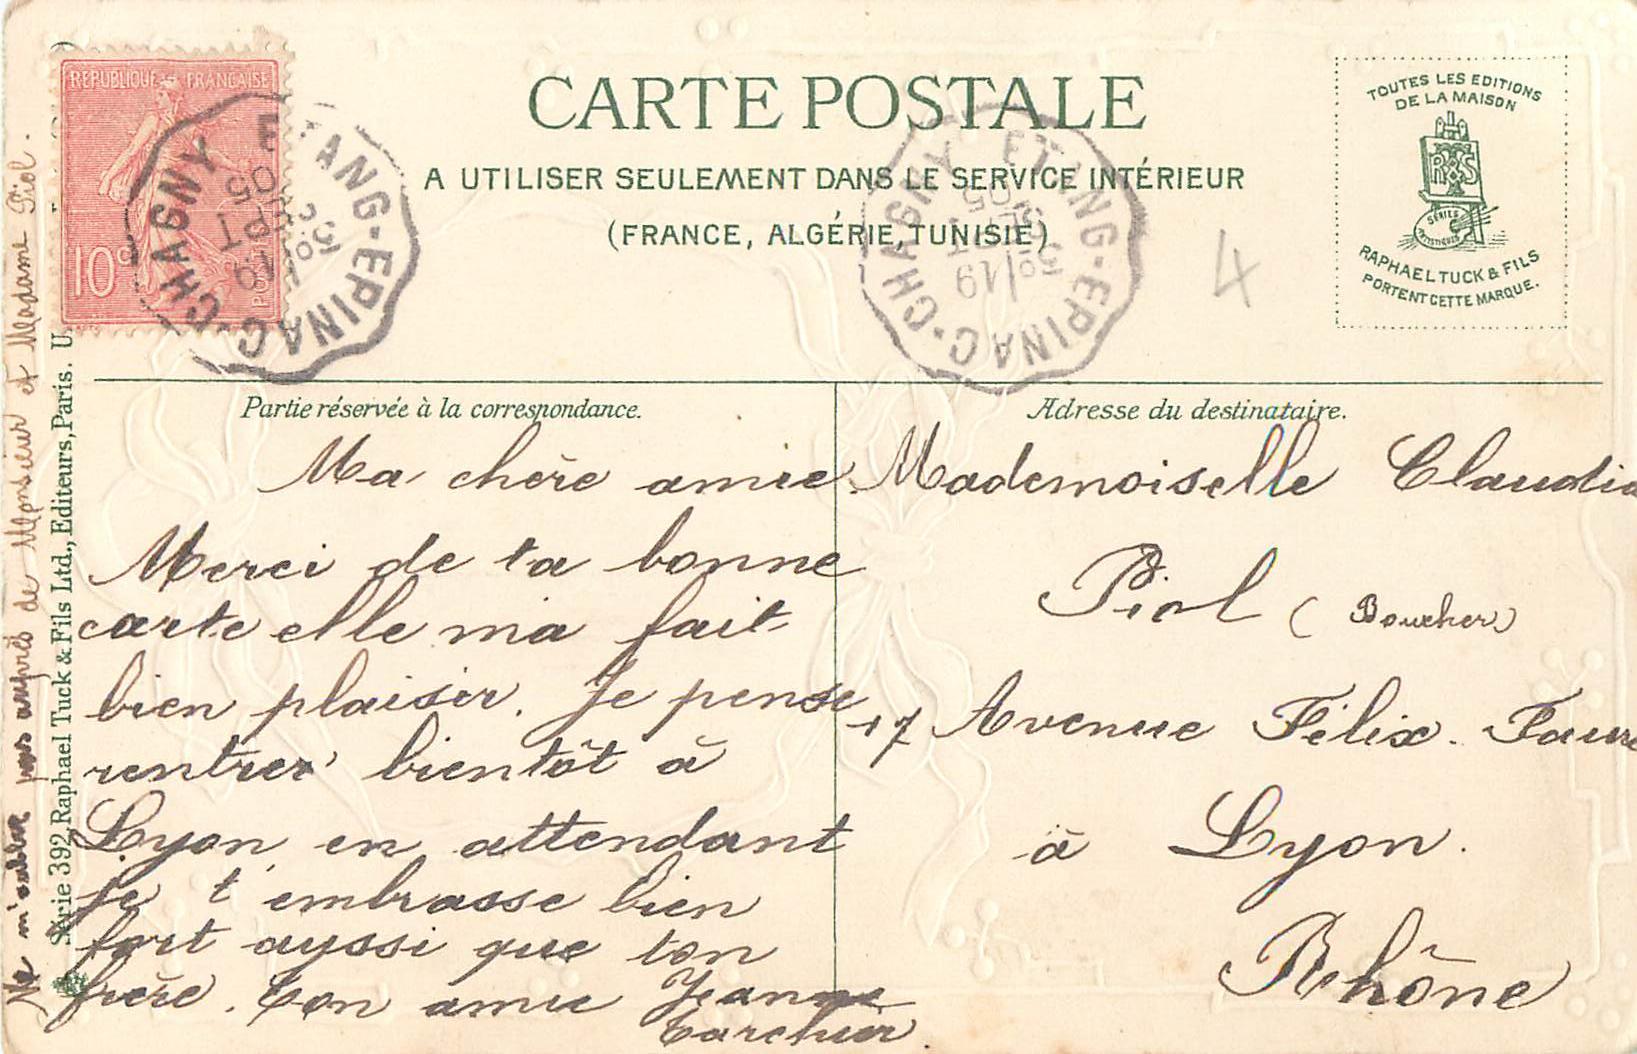 REPUBLIQUE FRANÇAISE
10c
ETANG-EPINAC-CHAGNY
3º/19
SEPT
05
CARTE POSTALE
A UTILISER SEULEMENT DANS LE SERVICE INTÉRIEUR
(FRANCE, ALGÉRIE, TUNISIE)
ETANG-EPINAC-CHAGNY
3º/19
SEPT
05
4
TOUTES LES EDITIONS
DE LA MAISON
SÉRIES
ARTISTIQUES
RAPHAEL TUCK & FILS
PORTENT CETTE MARQUE.
Partie réservée à la correspondance.
Ma chère amie
Merci de ta bonne
carte elle ma fait
bien plaisir. Je pense
rentrer bientôt à
Lyon en attendant
je t'embrasse bien
fort ayssi que ton
frère. Ton amie Jeanne
Adresse du destinataire.
Mademoiselle Claudia
Piol (Boucher)
17 Avenue Félix. Faure
à Lyon.
Rhône
Ne m'oublie pas auprès de Monsieur et Madame Piol.
Série 392, Raphael Tuck & Fils Ltd., Editeurs, Paris.